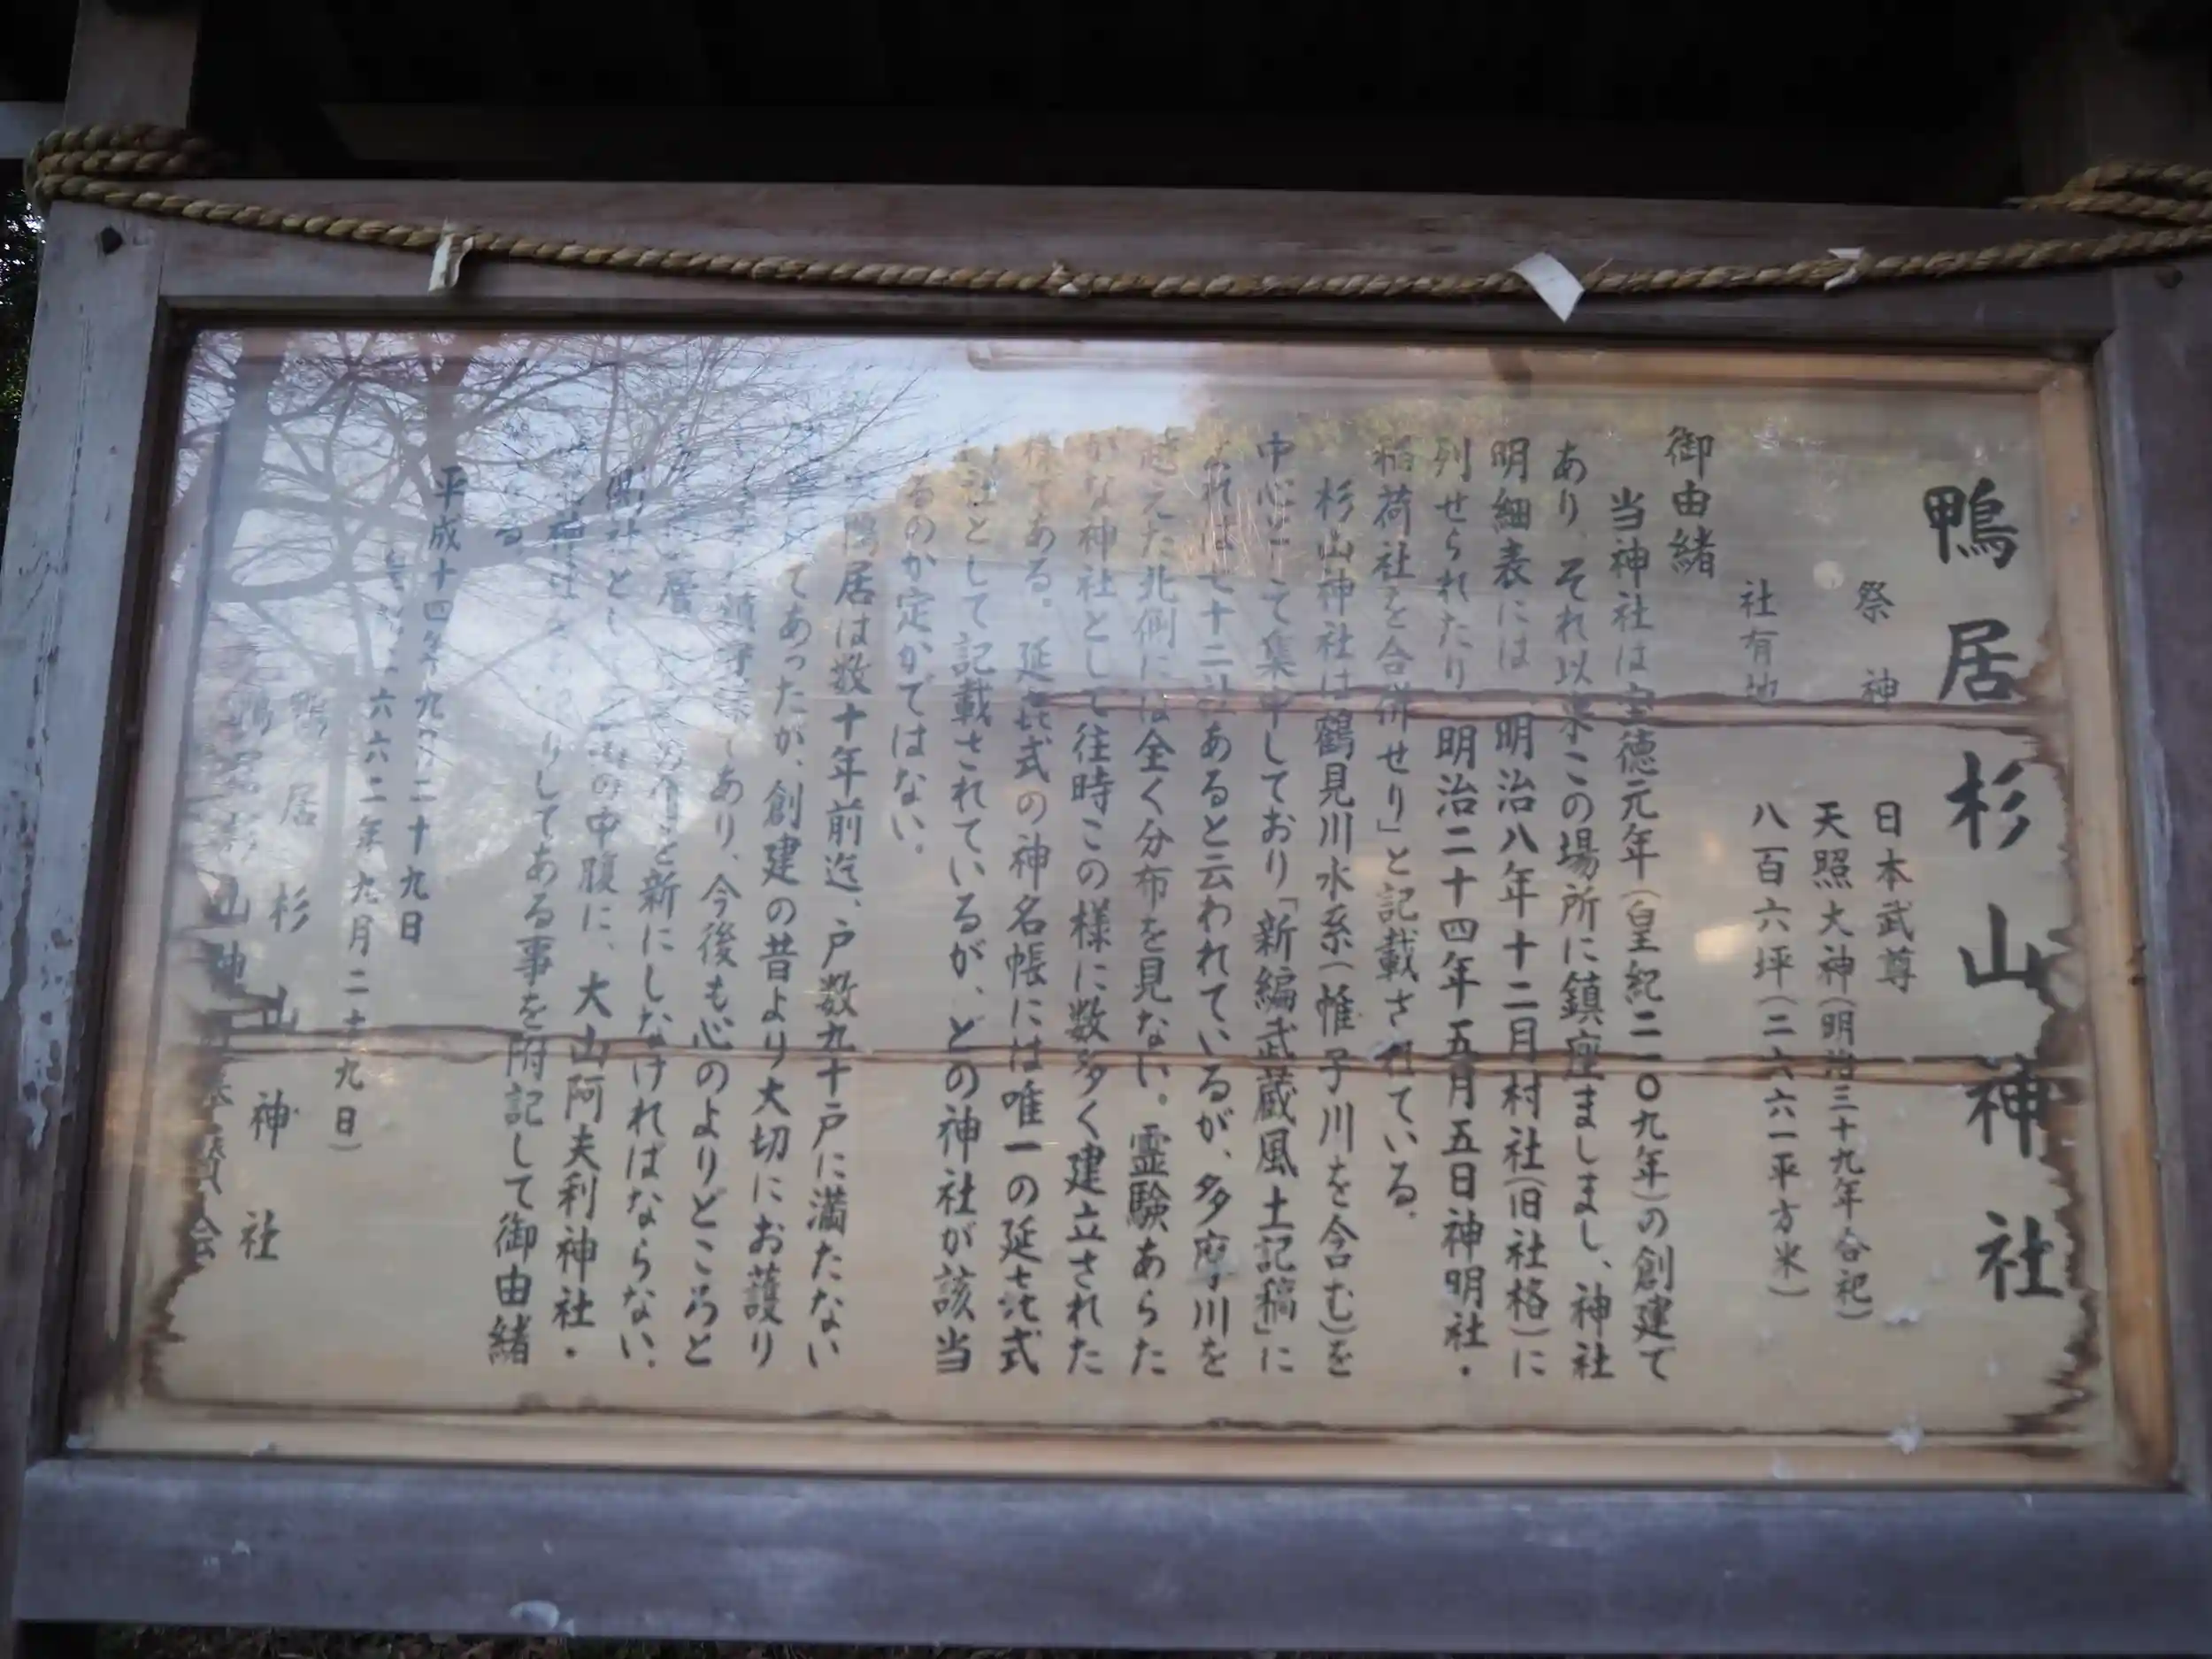 鴨居杉山神社
祭神 日本武尊
天照大神(明治三十九年合祀)
社有地 八百六坪(二六六一平方米)
御由緒
当神社は宝徳元年(皇紀二一〇九年)の創建て
あり、それ以来この場所に鎮座ましまし、神社
明細表には 明治八年十二月村社(旧社格)に
列せられたり 明治二十四年五月五日神明社・
稲荷社を合併せり」と記載されている。
杉山神社は鶴見川水系(帷子川を含む)を
中心として集中しており「新編武蔵風土記稿」に
よれば七十二社あると云われているが、多摩川を
越えた北側には全く分布を見ない。霊験あらた
かな神社として往時この様に数多く建立された
様である。延㐂式の神名帳には唯一の延㐂式
社として記載されているが、どの神社が該当
するのか定かではない。
鴨居は数十年前迄、戸数九十戸に満たない
てあったが、創建の昔より大切にお護り
あり、今後も心のよりどころと
新にしなければならない。
の中腹に、大山阿夫利神社・
神社 りしてある事を附記して御由緒
る
平成十四年九月二十九日
六六二年九月二十九日)
鴨居杉山神社
杉山神 会